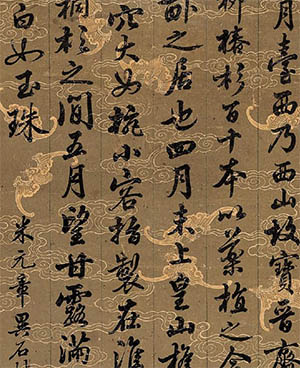 月臺西乃西山故寶晉齋
柳椿杉百十本以藥植之今
鄙之居也四月末上皇山樵
穴大如椀小容指製在淮
桐杉之間五月望甘露滿
白如玉珠
米元章異石